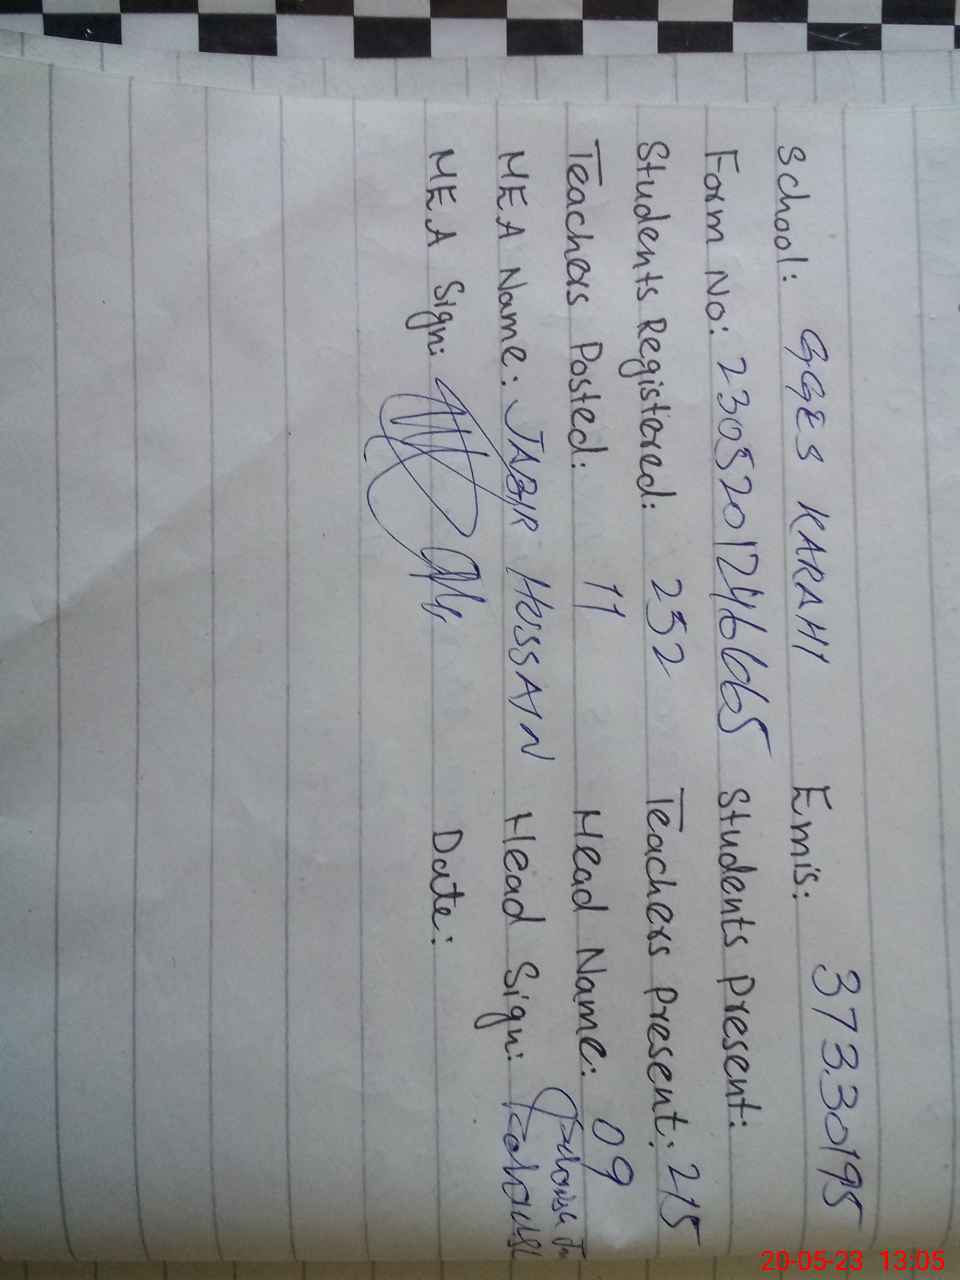 School: GGES KARAHI Emis: 37330195
Form No: 2305201246665 Students Present:
Students Registered: 252 Teachers Present: 215
Teachers Posted: 11 Head Name: 09
MEA Name: JABIR HUSSAIN Head Sign:
MEA Sign: Date:
20-05-23 13:05